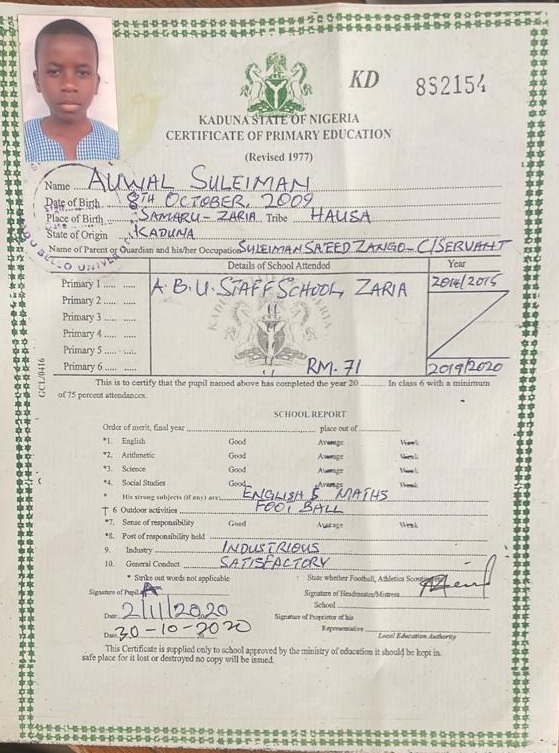 KD 852154
KADUNA STATE OF NIGERIA
CERTIFICATE OF PRIMARY EDUCATION
(Revised 1977)
Name AUWAL SULEIMAN
Date of Birth 8TH OCTOBER, 2009
Place of Birth SAMARU - ZARIA Tribe HAUSA
State of Origin KADUNA
Name of Parent or Guardian and his/her Occupation SULEIMAN SA'EED ZANGO - C/SERVANT
Details of School Attended Year
Primary 1 A.B.U. STAFF SCHOOL, ZARIA 2014/2015
Primary 2
Primary 3
Primary 4
Primary 5
Primary 6 RM. 71 2019/2020
GCL/0416
This is to certify that the pupil named above has completed the year 20 .......... In class 6 with a minimum
of 75 percent attendances.
SCHOOL REPORT
Order of merit, final year place out of
*1. English Good Average Weak
*2. Arithmetic Good Average Weak
*3. Science Good Average Weak
*4. Social Studies Good Average Weak
* His strong subjects (if any) are: ENGLISH & MATHS
† 6 Outdoor activities FOOT BALL
*7. Sense of responsibility Good Average Weak
*8. Post of responsibility held
9. Industry INDUSTRIOUS
10. General Conduct SATISFACTORY
* Strike out words not applicable State whether Football, Athletics
Signature of Pupil A Signature of Headmaster/Mistress
School
Date 2/11/2020 Signature of Proprietor of his
Representative
Date 30-10-2020 Local Education Authority
This Certificate is supplied only to school approved by the ministry of education it should be kept in
safe place for it lost or destroyed no copy will be issued.